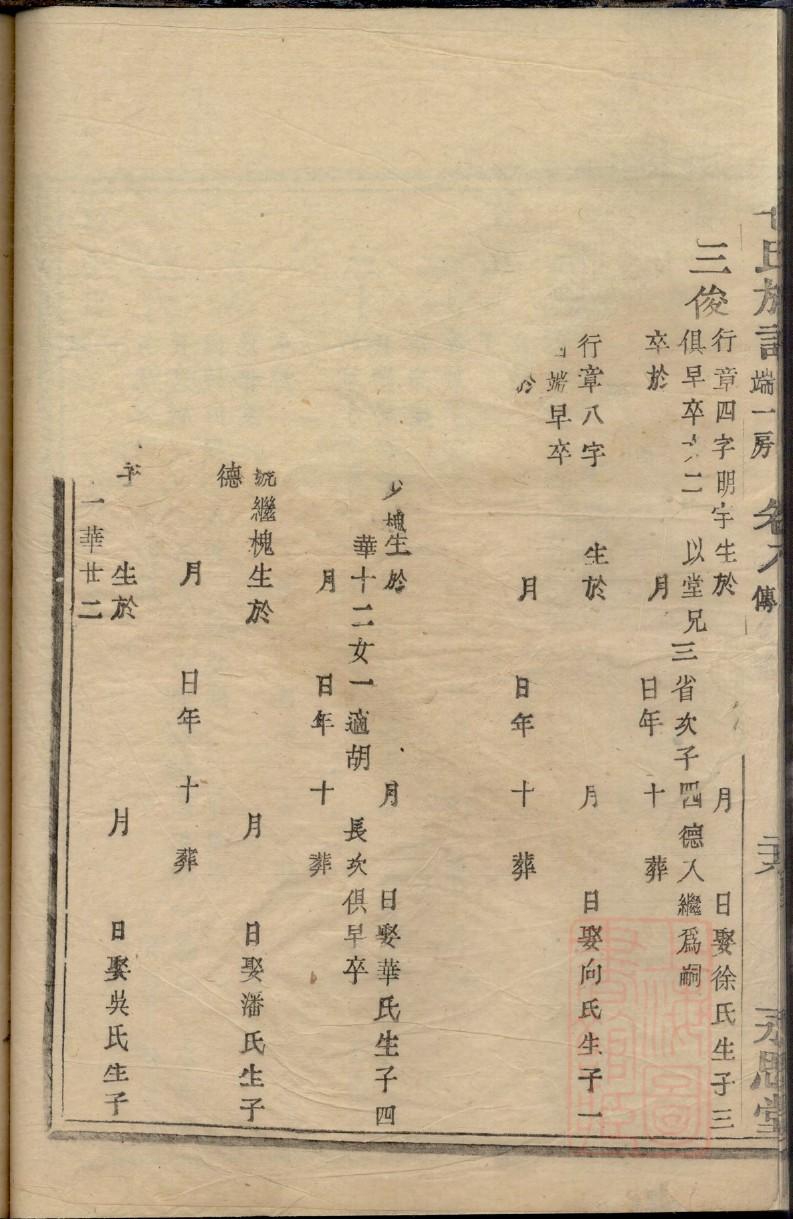 氏族譜 端一房 卷八 傳 永思堂
三俊
行章四字明宇生於 月 日娶徐氏生子三
俱早卒 二 以堂兄三省次子四德入繼爲嗣
卒於 月 日年 十 葬
行章八字 生於 月 日娶向氏生子一
端早卒
於 月 日年 十 葬
槐生於 月 日娶華氏生子四
華十二女一適胡 長次俱早卒
月 日年 十 葬
號繼槐生於 月 日娶潘氏生子
德
月 日年 十 葬
字 生於 月 日娶吳氏生子
一華廿二